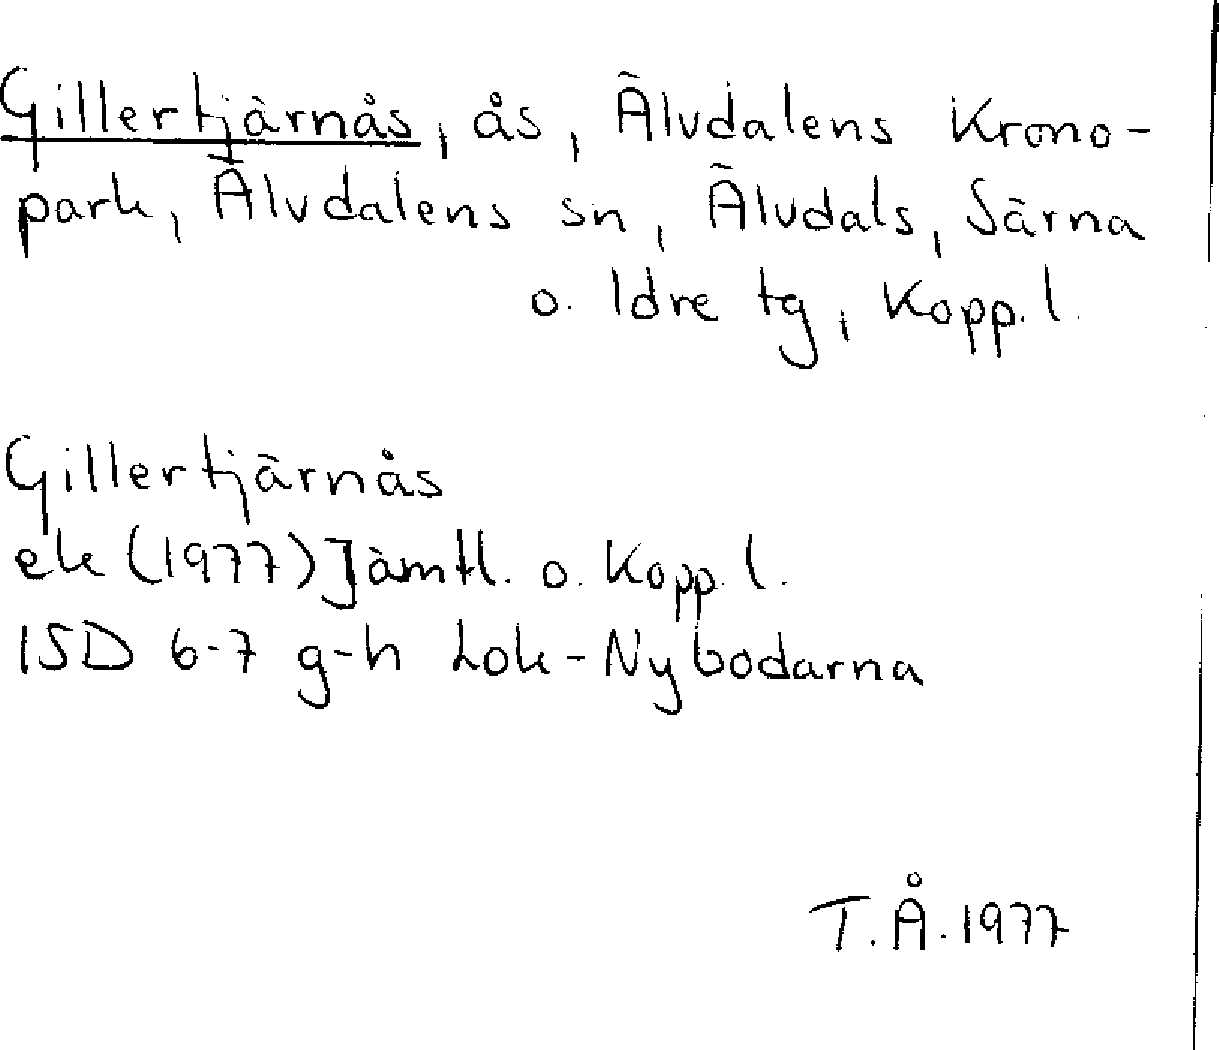 Gillertjärnås, ås, Älvdalens Krono-
park, Älvdalens sn, Älvdals, Särna
o. Idre tg, Kopp. l.
Gillertjärnås
ek (1977) Jämtl. o. Kopp. l.
15D 6-7 g-h Lok-Nybodarna
T.Å. 1977